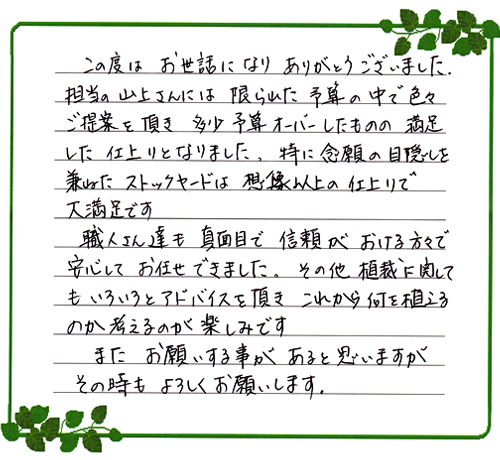 この度は お世話になり ありがとうございました.
担当の山上さんには 限られた 予算の中で色々
ご提案を頂き 多少予算オーバーしたものの 満足
した 仕上りとなりました。特に念願の目隠しを
兼ねた ストックヤードは 想像以上の仕上りで
大満足です
職人さん達も 真面目で 信頼が おける方々で
安心して お任せできました。その他 植栽に関して
も いろいろとアドバイスを頂き これから何を植える
のか 考えるのが 楽しみです
また お願いする事が あると思いますが
その時も よろしくお願いします.